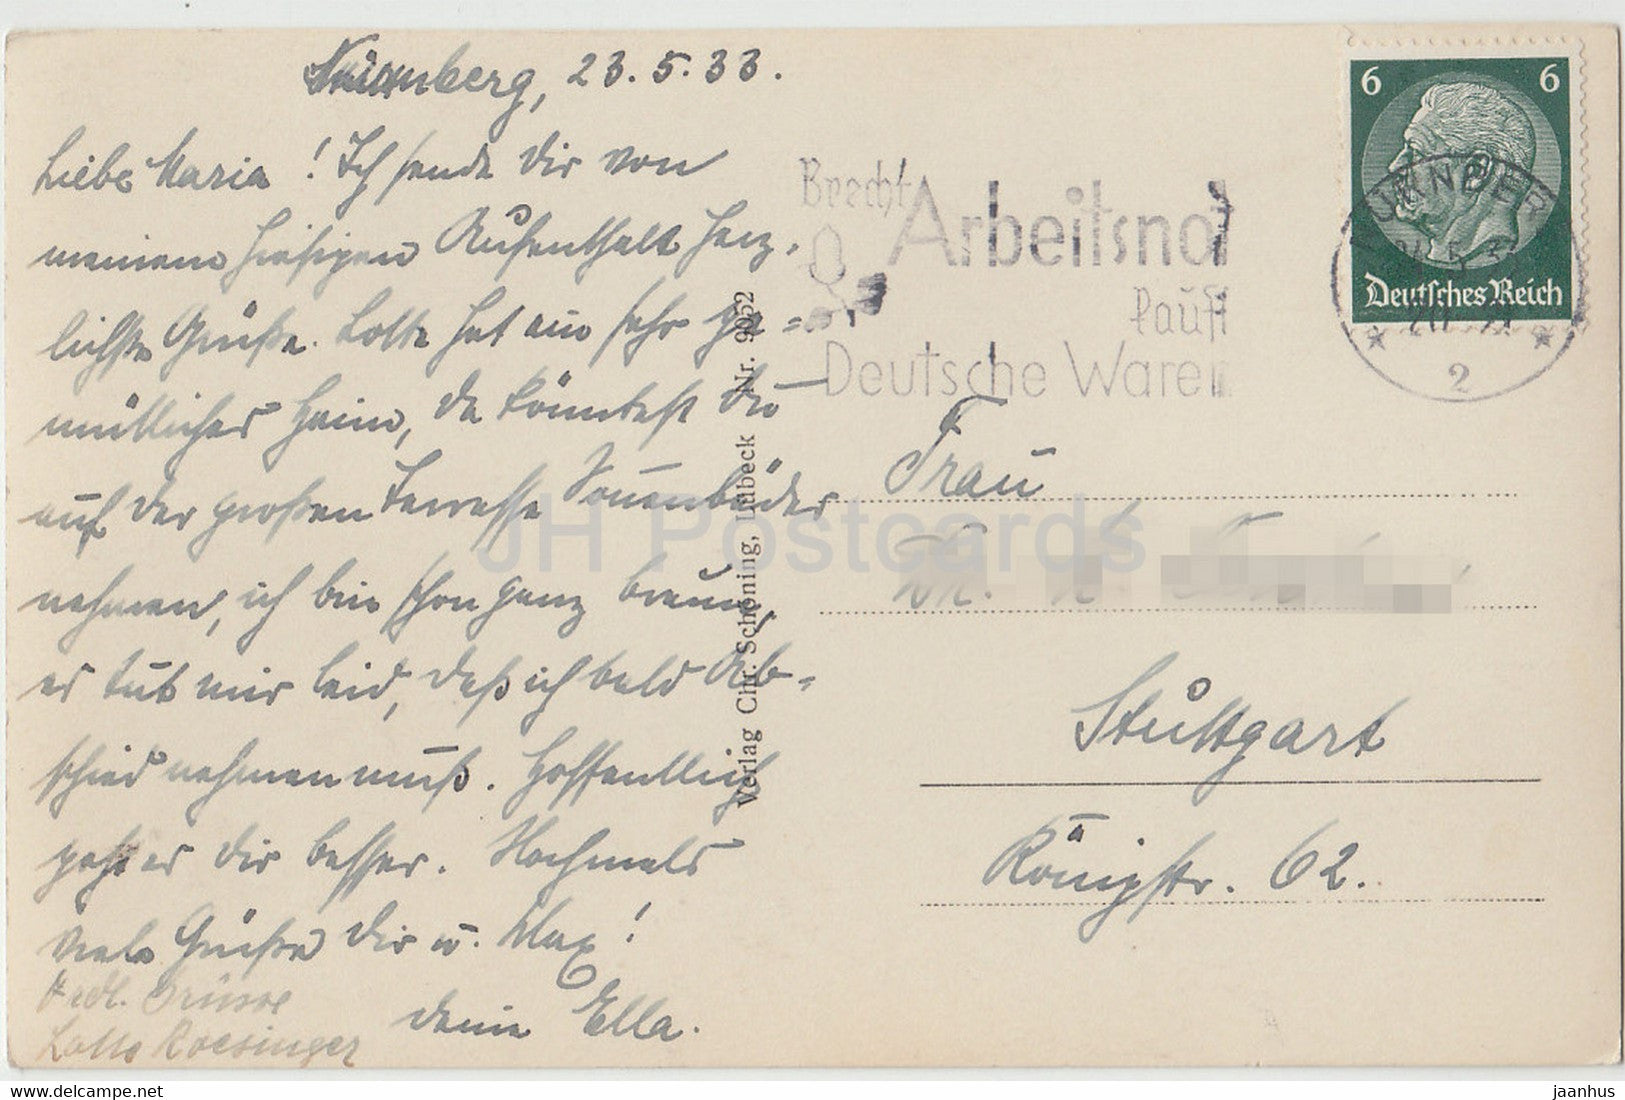 Nürnberg, 23.5.33.
Liebe Maria! Ich sende Dir von
meinem hiesigen Aufenthalt herz-
lichste Grüße. Lotte hat ein sehr ge-
mütliches Heim, da könntest Du
auf der großen Terrasse Sonnenbäder
nehmen, ich bin schon ganz braun,
es tut mir leid, daß ich bald Ab-
schied nehmen muß. Hoffentlich
geht es Dir besser. Nochmals
viele Grüße Dir u. Max!
deine Ella.
Grüsse
Lotte Roesinger
Verlag Chr. Schöning, Lübeck Nr. 9952
Brecht
Arbeitsnot
kauft
Deutsche Waren
6 6
Deutsches Reich
NÜRNBERG
2
Frau
Stuttgart
Königstr. 62.
JH Postcards
www.delcampe.net
jaanhus